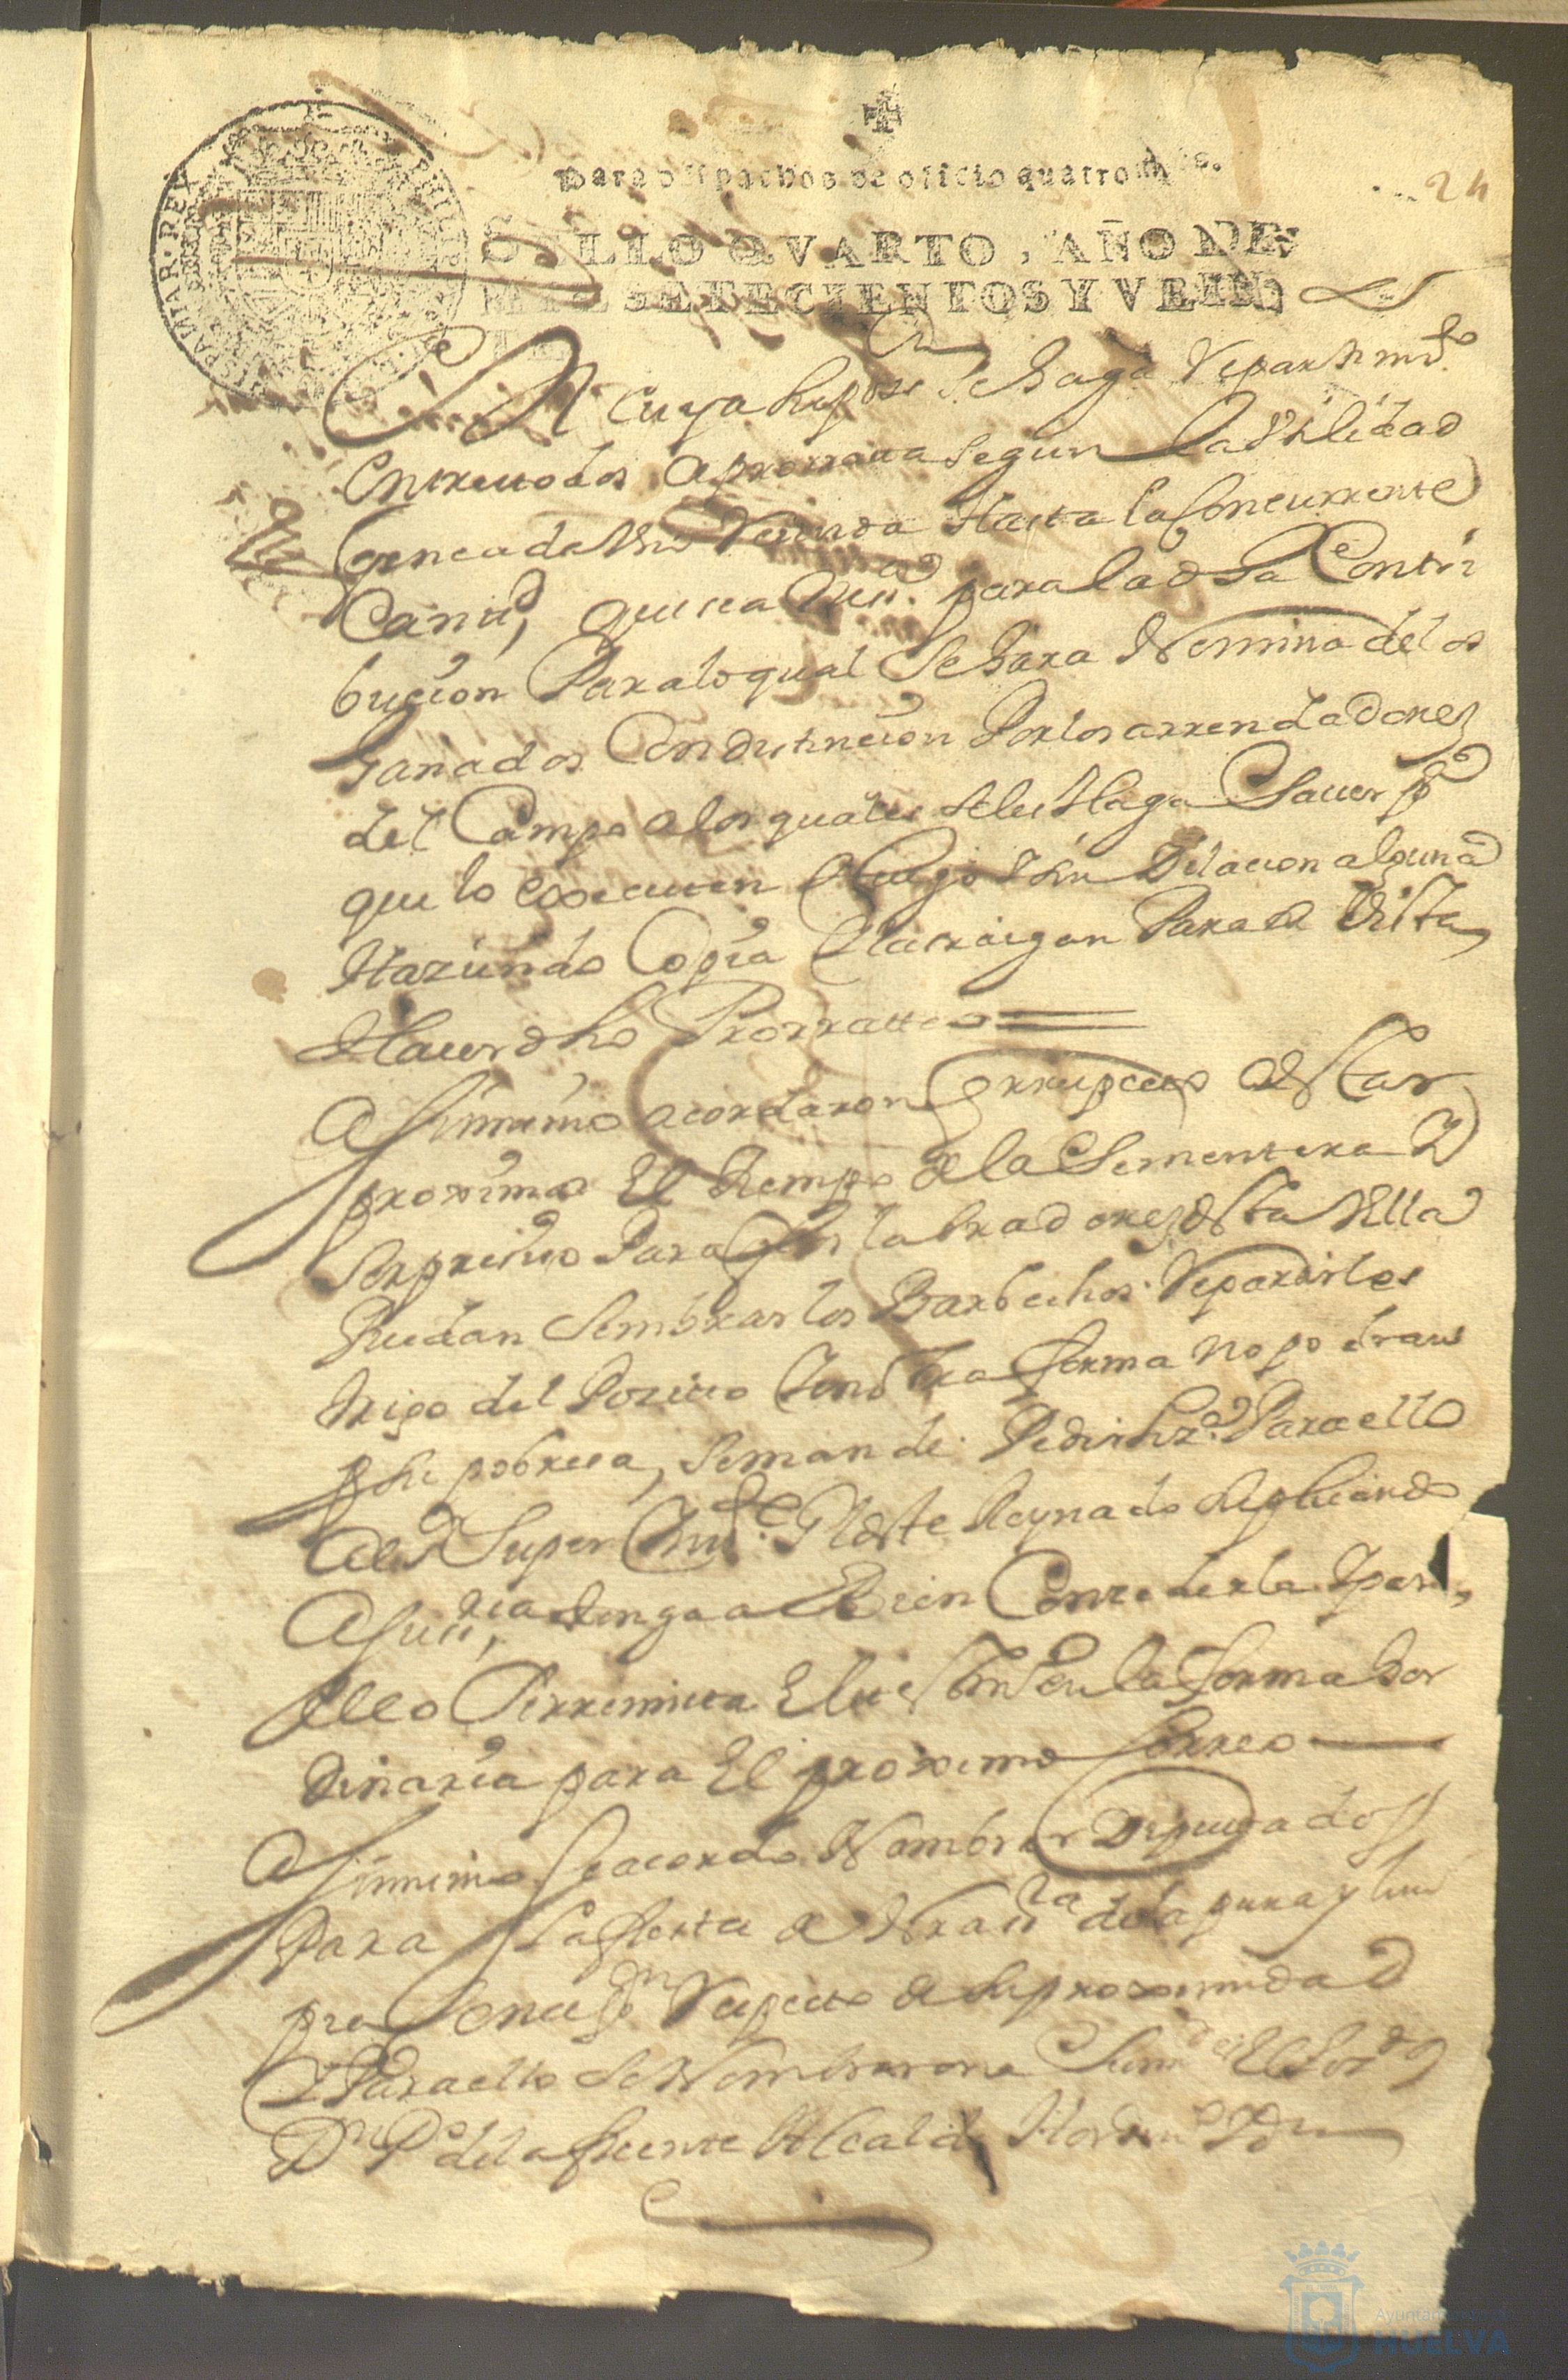 24
Para despachos de oficio quatro mrs.
SELLO QVARTO, AÑO DE
MIL SETECIENTOS Y VEIN
TE
HISPANIAR. REX
En cuya se haga repartimto.
entre todos a prorrata segun la vtilidad
hasta la concurrente
cantid, que sea para la dha contri
bucion Para lo qual se hara Nomina de los
ganados Con distincion Por los arrendadores
del Campo a los quales seles Haga Sauer pa
que lo executen luego sin Dilacion alguna
Haziendo Copia la traigan Para en vista
Hacer dho Prorratteo
Assimismo acordaron Respecto de estar
proximo El tiempo de la Sementera y
ser preciso Para q los labradores desta Villa
Puedan sembrar los Barbechos repartirles
trigo del Posito q en otra forma no podran
p su pobresa, se mande Pedir liza. Para ello
Al sr Super Intte. Gl deste Reynado suplicando
A su sia tenga a Bien Concederla y para
ello Se rremita El testim en la forma hor
dinaria para El proximo Correo
Assimismo se acordo Nombrar Diputados
Para la fiesta de Nra sra dela pura y lim
pia Concepon Respecto de su proximidad
y Para ello se Nombraron a
Dn Po de la fuente Alcalde Hordino y Dn
Ayuntamiento de
HUELVA